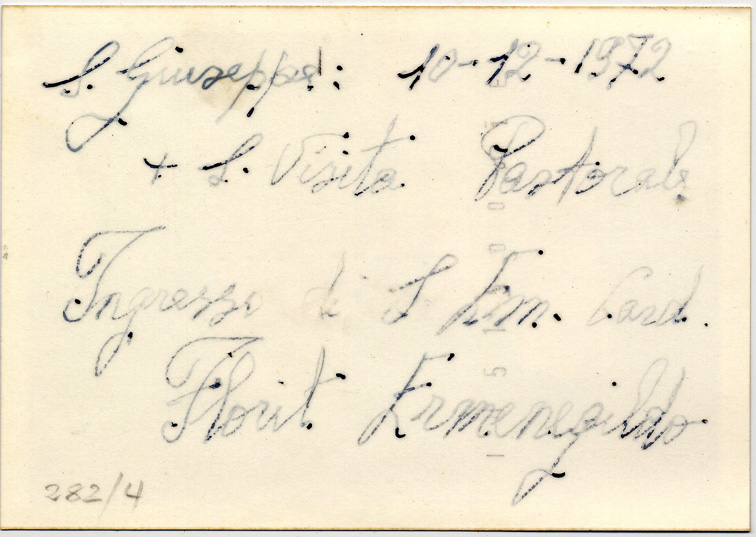 S. Giuseppe: 10-12-1972
+ S. Visita Pastorale
Ingresso di S. Em. Card.
Florit Ermenegildo
282/4